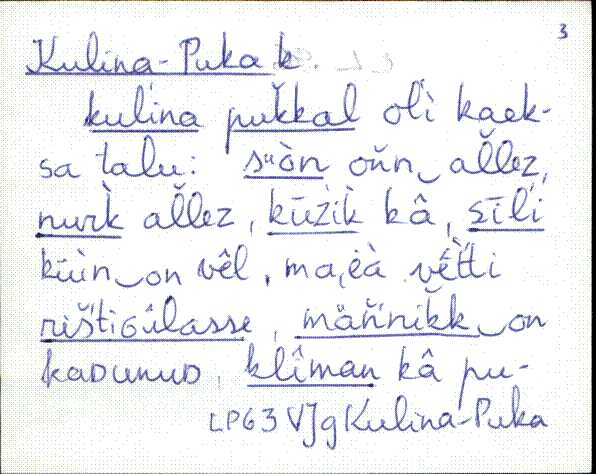 3
Kulina-Puka k.
kulina puk̆kal ol̀i kaek-
sa talu: süòn on̆n allez,
nurk̀ allez, kūžik̀ kâ, sīl̀i
kūìn on vêl, ma,ëà vĕt̀ti
rišti͔ɢûlasse, män̆nik̆k on
kaᴅunuᴅ, klîman kâ pu-
LPG3 VJg Kulina-Puka